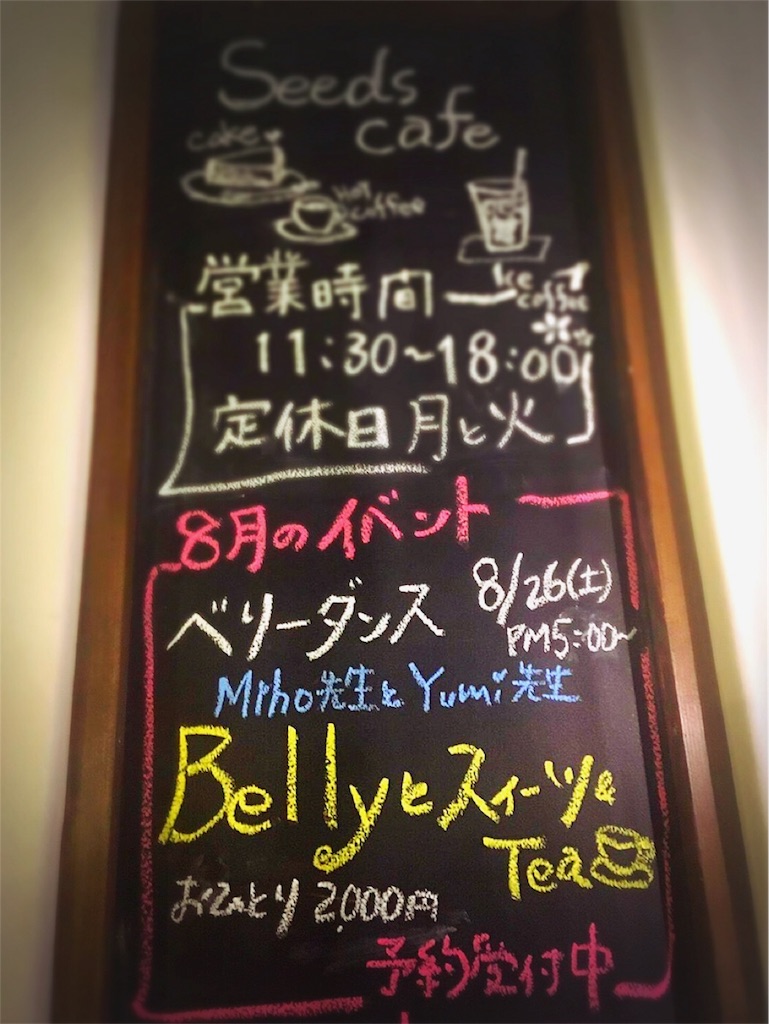 Seeds
cafe
cake
Hot
coffee
Ice
coffee
営業時間
11:30~18:00
定休日 月と火
8月のイベント
ベリーダンス
8/26(土)
PM5:00~
Miho先生とYumi先生
Bellyとスイーツ&
Tea
おひとり 2,000円
予約受付中